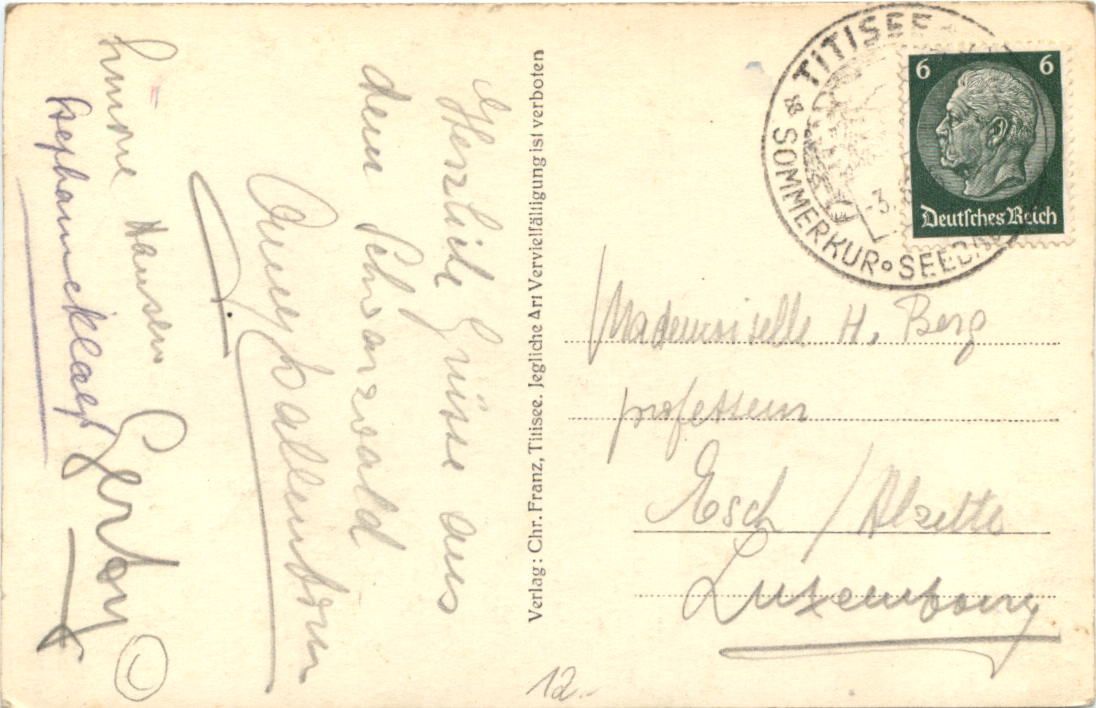 Herzliche Grüsse aus
dem Schwarzwald
Hansen
Verlag: Chr. Franz, Titisee. Jegliche Art Vervielfältigung ist verboten
TITISEE
SOMMERKUR
-3.
6 6
Deutsches Reich
Mademoiselle H. Berg
professeur
Esch / Alzette
Luxembourg
12.-